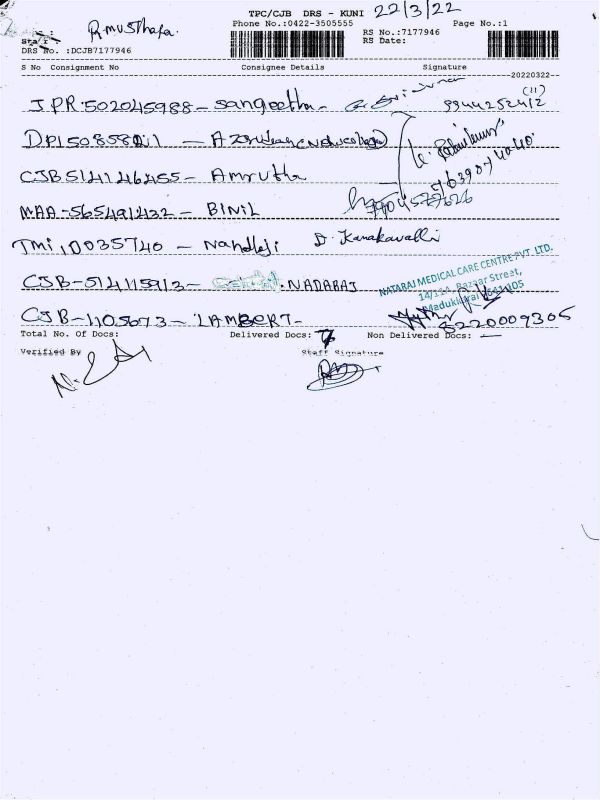 TPC/CJB DRS - KUNI 22/3/22
R. Musthafa.
Phone No.:0422-3505555 Page No.:1
Staff
RS No.:7177946
DRS No. :DCJB7177946 RS Date:
S No Consignment No Consignee Details Signature
20220322
JPR 502045988 - Sangeetha - (11) 9944252412
- A
CJB514146455 - Amrutha
MAA-565491432 - BINIL
TMI - Nandhaji D. Kanakavalli
CJB-514115913 - NADARAJ
NATARAJ MEDICAL CARE CENTRE PVT. LTD.
14/114, Bazaar Street,
Madukkarai 641105
CJB-1105673 - LAMBERT - 8220009305
Total No. Of Docs: Delivered Docs: 7 Non Delivered Docs: —
Verified By Staff Signature